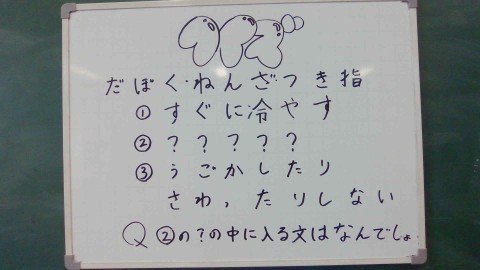 だぼく・ねんざ・つき指
① すぐに冷やす
② ？？？？？
③ うごかしたり
さわったりしない
Q ②の？の中に入る文はなんでしょ